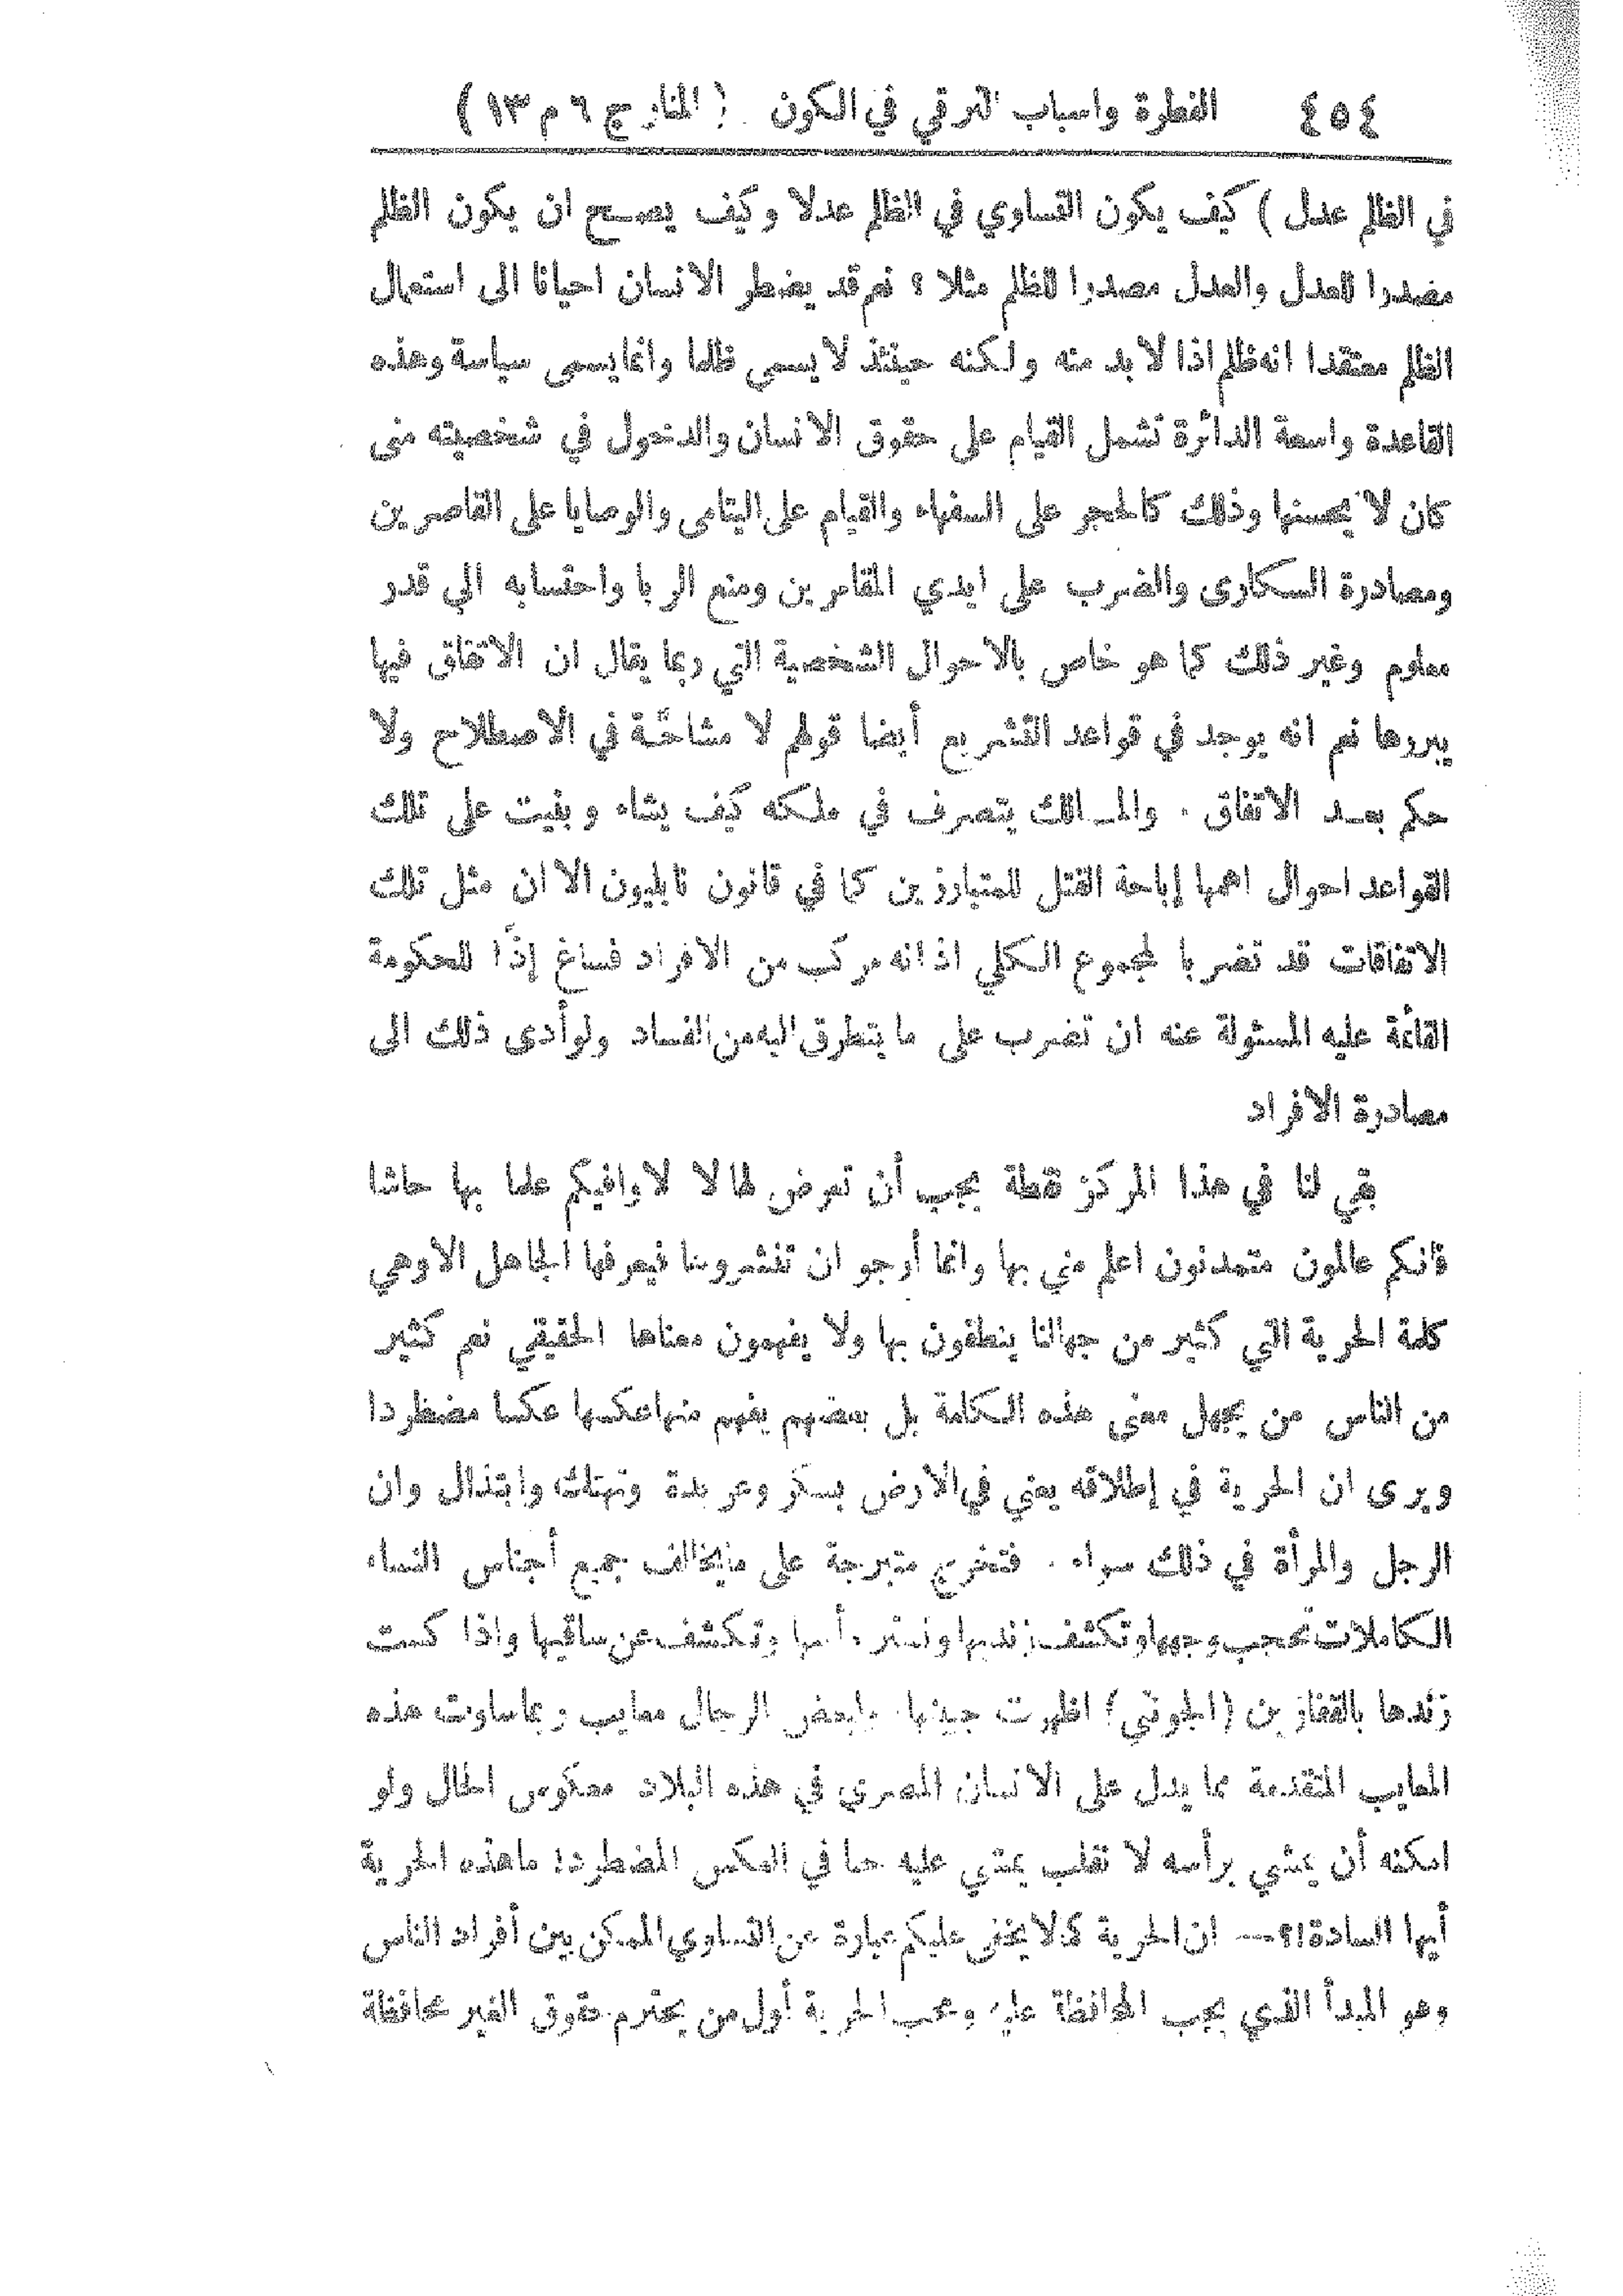 ٤٥٤ الفطرة واسباب الترقي في الكون (المنار ج ٦ م ١٣)
في الظلم عدل) كيف يكون التساوي في الظلم عدلا وكيف يصح ان يكون الظلم
مصدرا للعدل والعدل مصدرا للظلم مثلا ؟ نعم قد يضطر الانسان احيانا الى استعمال
الظلم معتقدا انه ظلم اذا لا بد منه ولكنه حينئذ لا يسمى ظلما وانما يسمى سياسة وهذه
القاعدة واسعة الدائرة تشمل القيام على حقوق الانسان والدخول في شخصيته متى
كان لا يحسنها وذلك كالحجر على السفهاء والقيام على اليتامى والوصايا على القاصرين
ومصادرة السكارى والضرب على ايدي المقامرين ومنع الربا واحتسابه الي قدر
معلوم وغير ذلك كما هو خاص بالاحوال الشخصية التي ربما يقال ان الاتفاق فيها
يبررها نعم انه يوجد في قواعد التشريع أيضا قولهم لا مشاحّة في الاصطلاح ولا
حكم بعد الاتفاق . والمالك يتصرف في ملكه كيف يشاء وبنيت على تلك
القواعد احوال اهمها إباحة القتل للمتبارزين كما في قانون نابليون الا ان مثل تلك
الاتفاقات قد تضر بالمجموع الكلي اذ انه مركب من الافراد فساغ إذًا للحكومة
القائمة عليه المسئولة عنه ان تضرب على ما يتطرق اليه من الفساد ولو أدى ذلك الى
مصادرة الافراد
بقي لنا في هذا المركز نقطة يجب أن نعرض لها لا لاوافيكم علما بها حاشا
فانكم عالمون متمدنون اعلم مني بها وانما أرجو ان تنشروها فيعرفها الجاهل الا وهي
كلمة الحرية التي كثير من جهالنا ينطقون بها ولا يفهمون معناها الحقيقي نعم كثير
من الناس من يجهل معنى هذه الكلمة بل بعضهم يفهم منها عكسها عكسا مضطردا
ويرى ان الحرية في إطلاقه يعثي في الارض بسكر وعربدة وتهتك وابتذال وان
الرجل والمرأة في ذلك سواء . فتخرج متبرجة على ما يخالف جميع أجناس النساء
الكاملات تحجب وجهها وتكشف زنديها وتستر رأسها وتكشف عن ساقيها واذا كست
زندها بالقفازين (الجونتي) اظهرت جيدها. ولبعض الرجال معايب ربما ساوت هذه
المعايب المتقدمة مما يدل على الانسان المصري في هذه البلاد معكوس الحال ولو
امكنه أن يمشي برأسه لا نقلب يمشي عليه حبا في العكس المضطرد! ما هذه الحرية
أيها السادة!؟--- ان الحرية كما لا يخفى عليكم عبارة عن التساوي الممكن بين أفراد الناس
وهو المبدأ الذي يجب المحافظة عليه ومحب الحرية أول من يحترم حقوق الغير محافظة